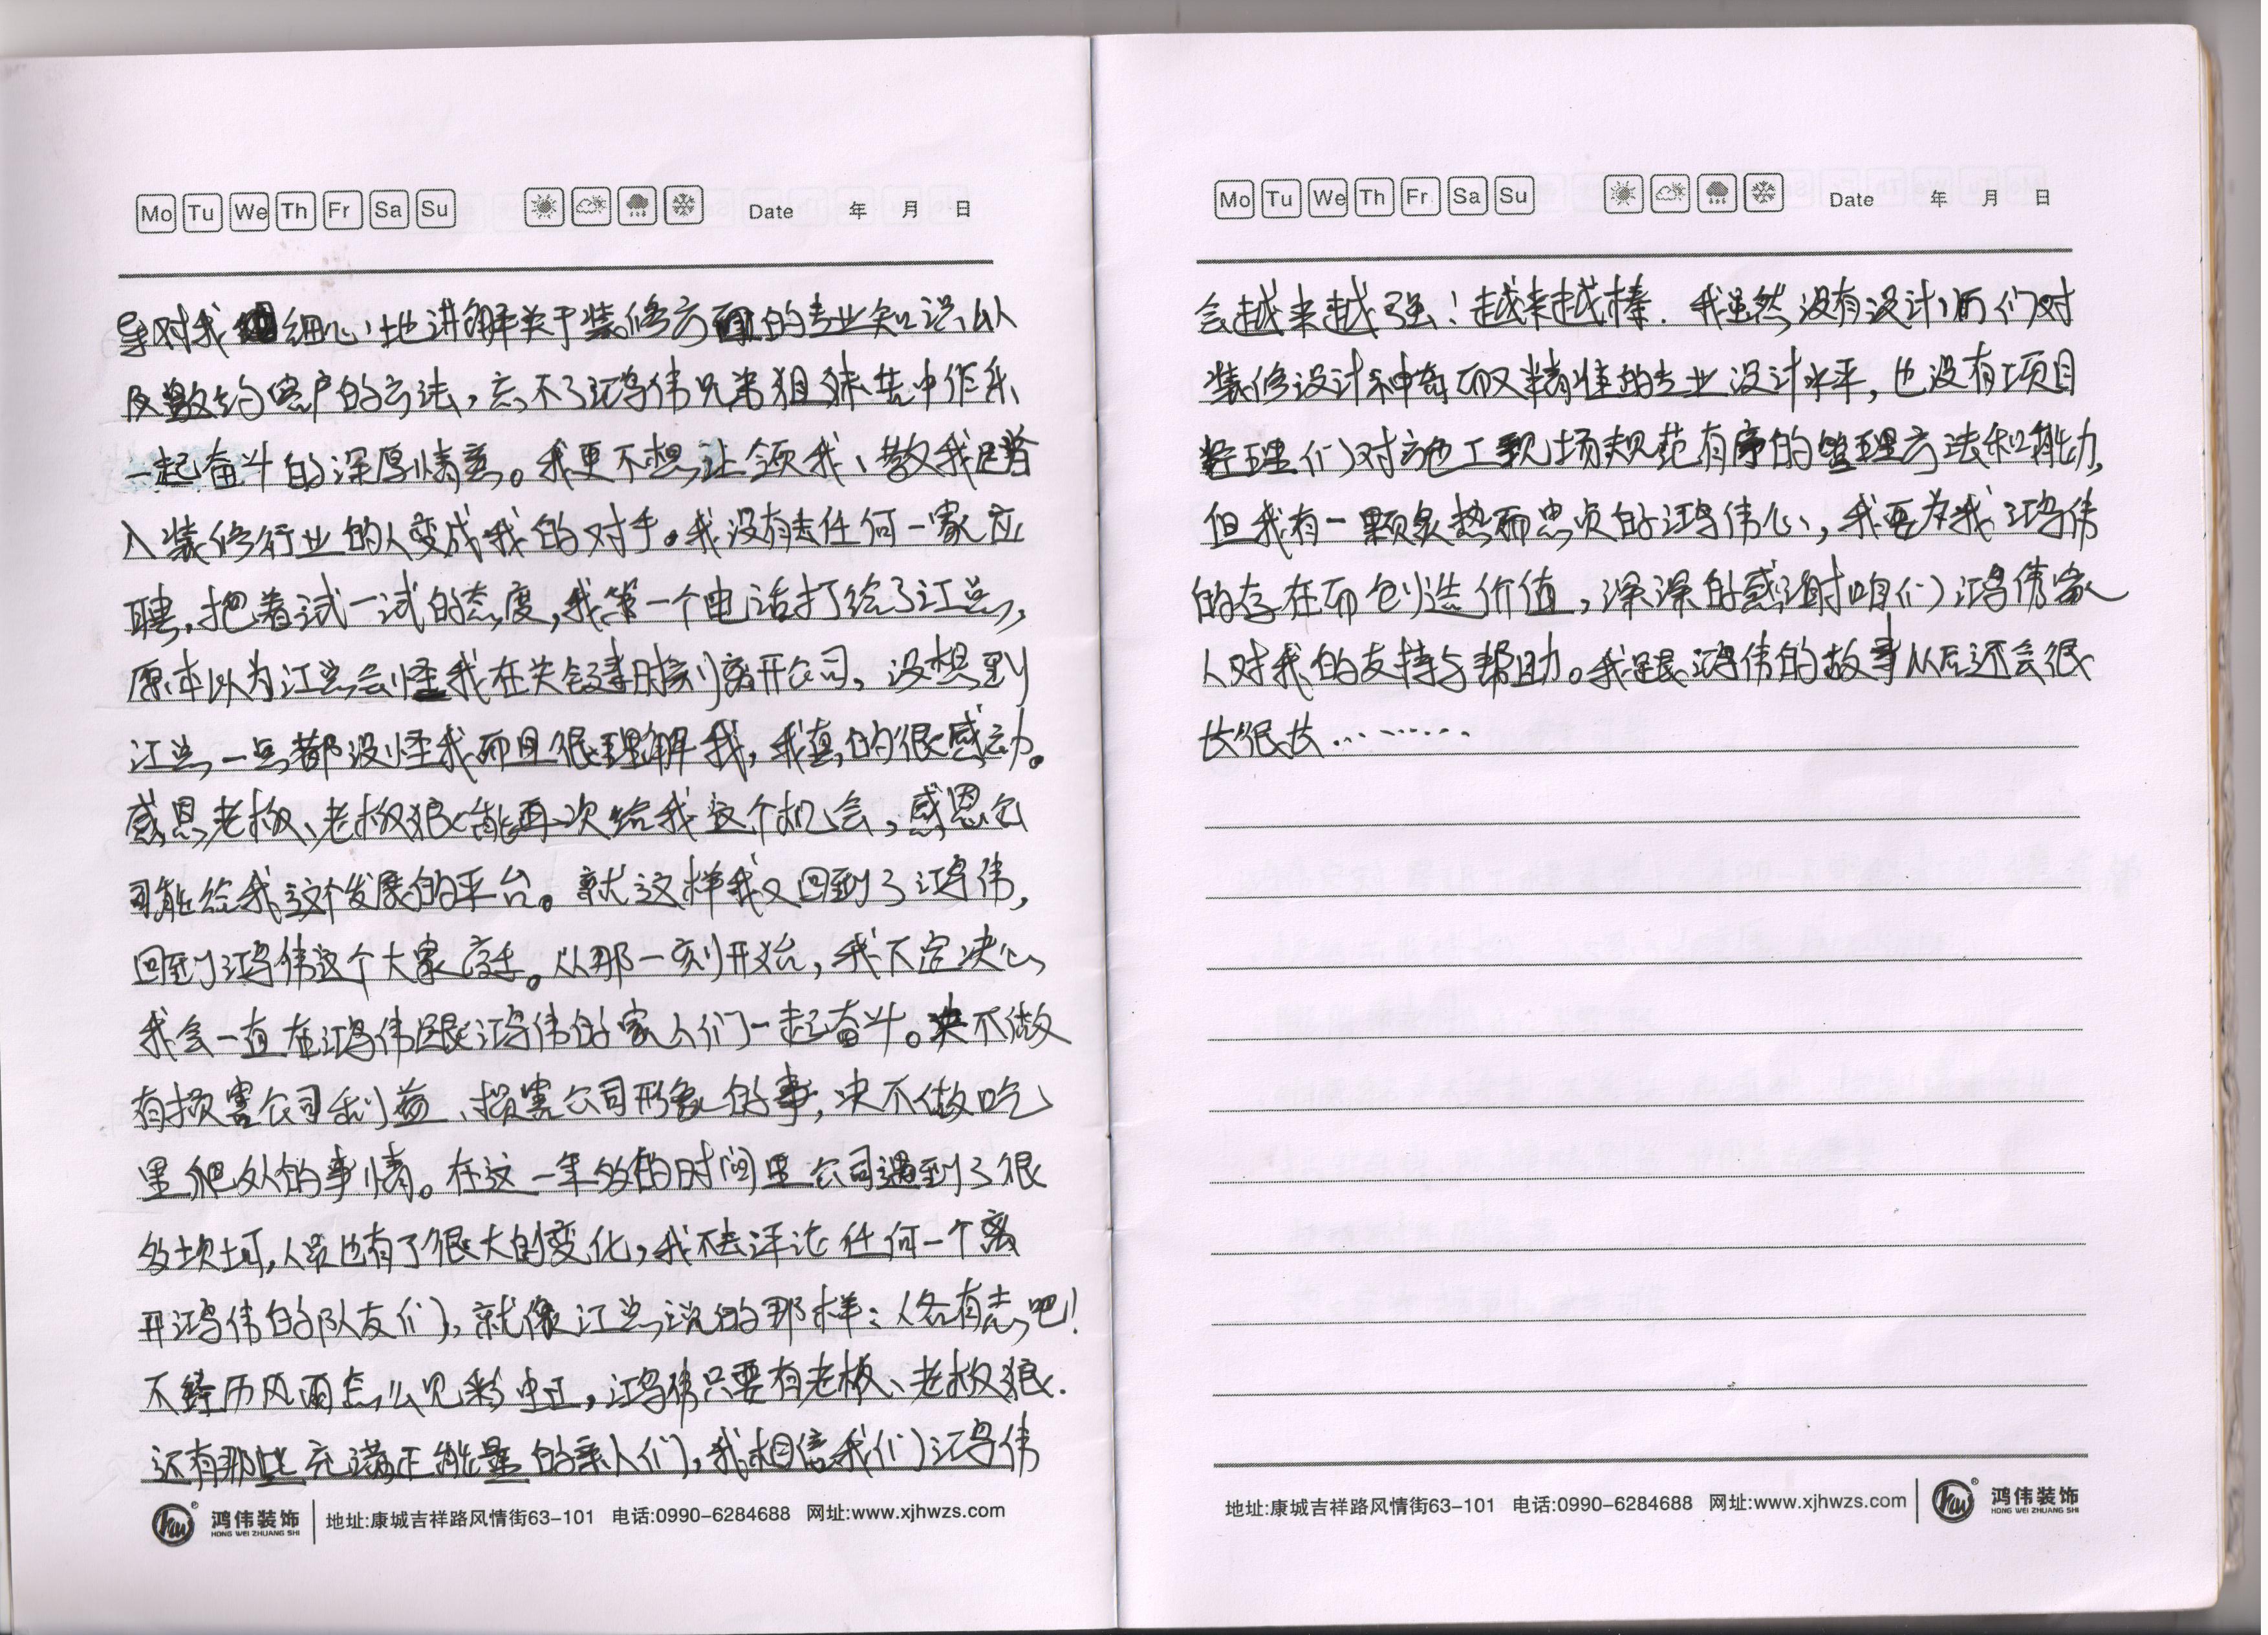 Mo Tu We Th Fr Sa Su Date 年 月 日
导对我细心地讲解关于装修方面的专业知识以
及邀约客户的方法，忘不了鸿伟兄弟姐妹苦中作乐
一起奋斗的深厚情意。我更不想让领我、教我踏
入装修行业的人变成我的对手。我没有去任何一家应
聘，把着试一试的态度，我第一个电话打给了江总，
原本以为江总会怪我在关键时刻离开公司，没想到
江总一点都没怪我而且很理解我，我真的很感动。
感恩老板、老板娘能再次给我这个机会，感恩公
司能给我这个发展的平台。就这样我又回到了鸿伟，
回到鸿伟这个大家庭。从那一刻开始，我下定决心
我会一直在鸿伟跟鸿伟的家人们一起奋斗。决不做
有损害公司利益、损害公司形象的事，决不做吃
里爬外的事情。在这一年多的时间里公司遇到了很
多坎坷，人员也有了很大的变化，我不去评论任何一个离
开鸿伟的队友们，就像江总说的那样：人各有志吧！
不经历风雨怎么见彩虹，鸿伟只要有老板、老板娘.
还有那些充满正能量的亲人们，我相信我们鸿伟
鸿伟装饰 HONG WEI ZHUANG SHI 地址:康城吉祥路风情街63-101 电话:0990-6284688 网址:www.xjhwzs.com
Mo Tu We Th Fr Sa Su Date 年 月 日
会越来越强！越来越棒. 我虽然没有设计师们对
装修设计神奇而又精准的专业设计水平，也没有项目
经理们对施工现场规范有序的管理方法和能力，
但我有一颗炙热而忠贞的鸿伟心，我要为我鸿伟
的存在而创造价值，深深的感谢咱们鸿伟家
人对我的支持与帮助。我跟鸿伟的故事以后还会很
长很长………
地址:康城吉祥路风情街63-101 电话:0990-6284688 网址:www.xjhwzs.com 鸿伟装饰 HONG WEI ZHUANG SHI